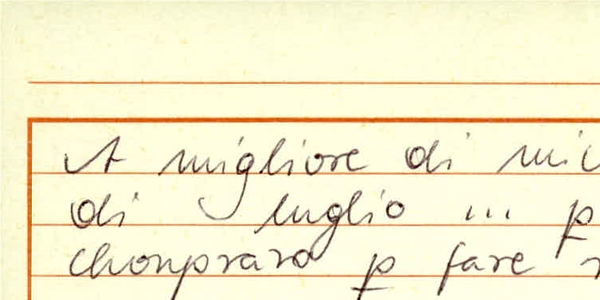 A migliore di
di luglio ... p
chonpraro p fare